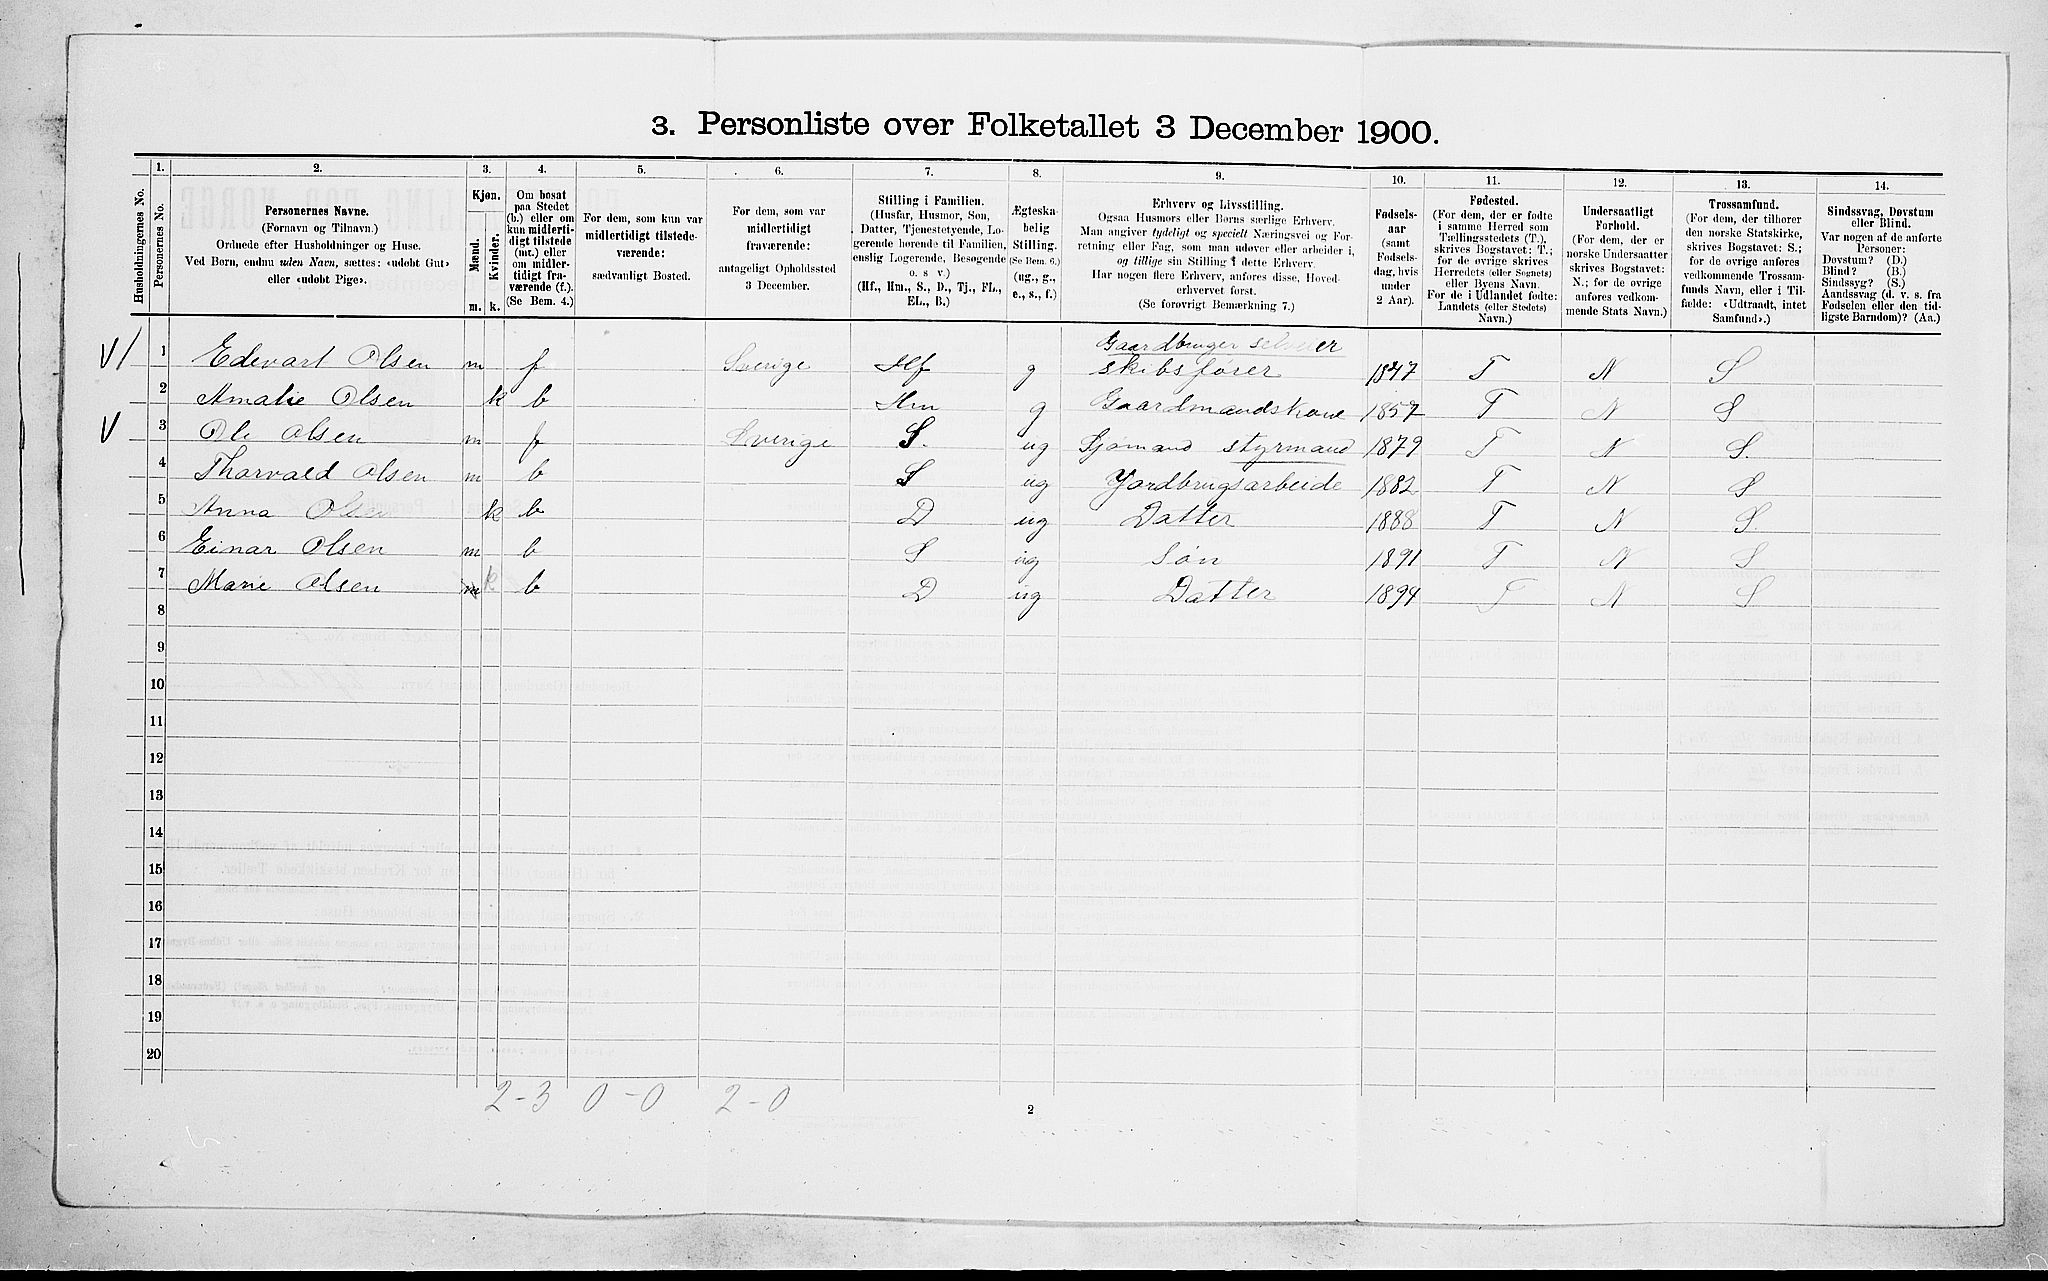 3. Personliste over Folketallet 3 December 1900.
Husholdningernes No.
1.
Personernes No.
2.
Personernes Navne.
(Fornavn og Tilnavn.)
Ordnede efter Husholdninger og Huse.
Ved Børn, endnu uden Navn, sættes: «udøbt Gut»
eller «udøbt Pige».
3.
Kjøn.
Mænd.
Kvinder.
m. k.
4.
Om bosat
paa Stedet
(b.) eller om
kun midlerti-
digt tilstede
(mt.) eller
om midler-
tidigt fra-
værende (f.).
(Se Bem. 4.)
5.
For dem, som kun var
midlertidigt tilstede-
værende:
sædvanligt Bosted.
6.
For dem, som var
midlertidigt
fraværende:
antageligt Opholdssted
3 December.
7.
Stilling i Familien.
(Husfar, Husmor, Søn,
Datter, Tjenestetyende, Lo-
gerende hørende til Familien,
enslig Logerende, Besøgende
o. s v.)
(Hf., Hm., S., D., Tj., FL.,
EL., B.)
8.
Ægteska-
belig
Stilling.
(Se Bem. 6.)
(ug., g.,
e., s., f.)
9.
Erhverv og Livsstilling.
Ogsaa Husmors eller Børns særlige Erhverv.
Man angiver tydeligt og specielt Næringsvei og For-
retning eller Fag, som man udøver eller arbeider i,
og tillige sin Stilling i dette Erhverv.
Har nogen flere Erhverv, anføres disse, Hoved-
erhvervet først.
(Se forøvrigt Bemærkning 7.)
10.
Fødsels-
aar
(samt
Fødsels-
dag, hvis
under
2 Aar).
11.
Fødested.
(For dem, der er fødte
i samme Herred som
Tællingsstedets (T.),
skrives Bogstavet: T.;
for de øvrige skrives
Herredets (eller Sognets)
eller Byens Navn.
For de i Udlandet fødte:
Landets (eller Stedets)
Navn.)
12.
Undersaatligt
Forhold.
(For dem, der er
norske Undersaatter
skrives Bogstavet:
N.; for de øvrige
anføres vedkom-
mende Stats Navn.)
13.
Trossamfund.
(For dem, der tilhører
den norske Statskirke,
skrives Bogstavet: S.;
for de øvrige anføres
vedkommende Trossam-
funds Navn, eller i Til-
fælde: «Udtraadt, intet
Samfund».)
14.
Sindssvag, Døvstum
eller Blind.
Var nogen af de anførte
Personer:
Døvstum? (D.)
Blind? (B.)
Sindssyg? (S.)
Aandssvag (d. v. s. fra
Fødselen eller den tid-
ligste Barndom)? (Aa.)
Gaardbruger selveier
1 Edevart Olsen m f Sverige Hf g skibsfører 1847 T N S
2 Amalie Olsen k b Hm g Gaardmandskone 1857 T N S
3 Ole Olsen m f Sverige S. ug Sjømand styrmand 1879 T N S.
4 Thorvald Olsen m b S ug Jordbrugsarbeide 1882 T N S
5 Anna Olsen k b D ug Datter 1888 T N S.
6 Einar Olsen m b S ug Søn 1891 T N S
7 Marie Olsen m k b D ug Datter 1894 T N S
8
9
10
11
12
13
14
15
16
17
18
19
20
2-3 0-0 2-0
2